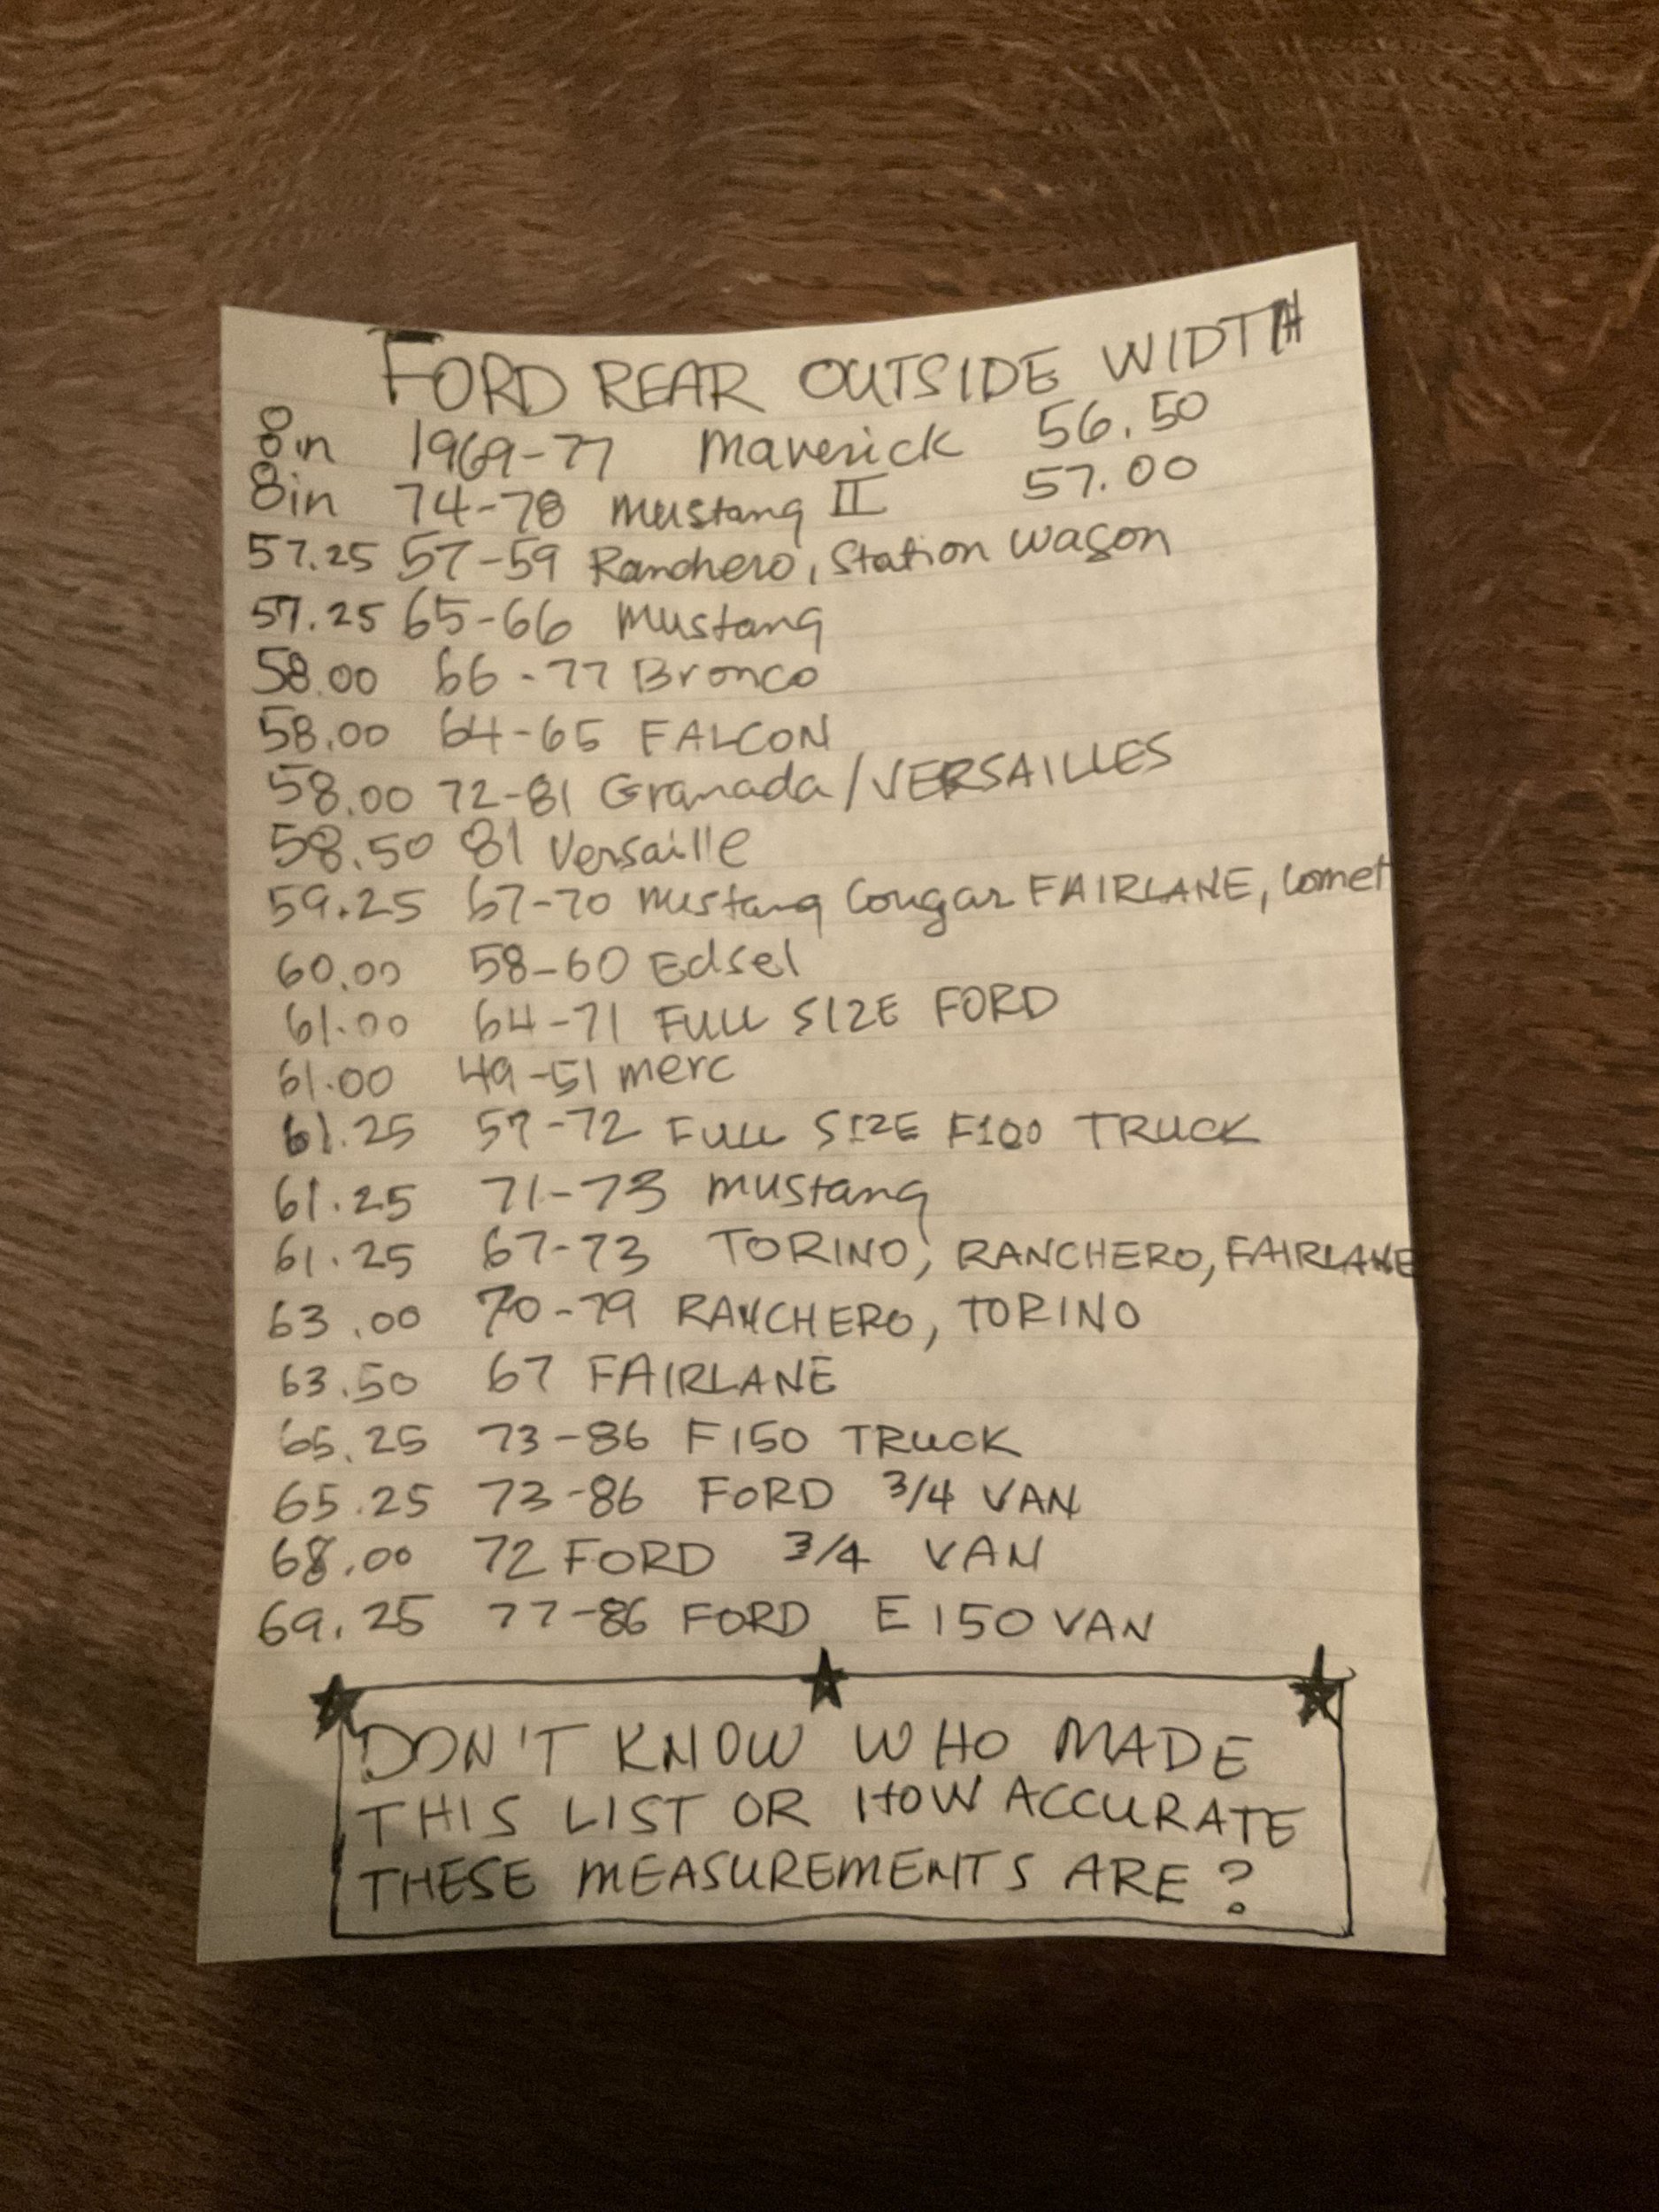 FORD REAR OUTSIDE WIDTH
8in 1969-77 Maverick 56.50
8in 74-78 Mustang II 57.00
57.25 57-59 Ranchero, Station Wagon
57.25 65-66 Mustang
58.00 66-77 Bronco
58.00 64-65 FALCON
58.00 72-81 Granada/VERSAILLES
58.50 81 Versaille
59.25 67-70 Mustang Cougar FAIRLANE, Comet
60.00 58-60 Edsel
61.00 64-71 FULL SIZE FORD
61.00 49-51 merc
61.25 57-72 FULL SIZE F100 TRUCK
61.25 71-73 Mustang
61.25 67-73 TORINO, RANCHERO, FAIRLANE
63.00 70-79 RANCHERO, TORINO
63.50 67 FAIRLANE
65.25 73-86 F150 TRUCK
65.25 73-86 FORD 3/4 VAN
68.00 72 FORD 3/4 VAN
69.25 77-86 FORD E150 VAN
DON'T KNOW WHO MADE
THIS LIST OR HOW ACCURATE
THESE MEASUREMENTS ARE?